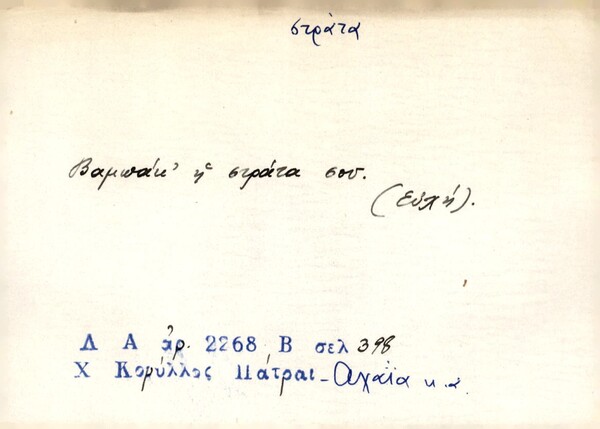 στράτα
Βαμπάκ' ἡ στράτα σου.
(Εὐχή).
Λ Α ἀρ. 2268, Β σελ 398
Χ Κορύλλος Πάτραι - Ἀχαΐα κ.ἀ.